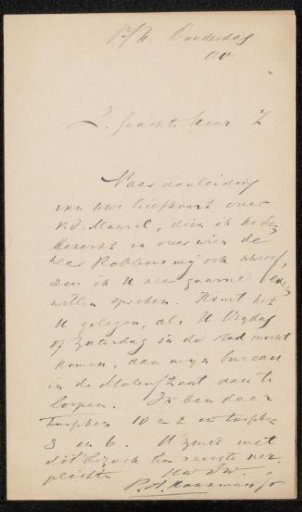 Donderdag
Z. geachte Heer Z.
Naar aanleiding
van uwe briefkaart over
v.d. Maarel, dien ik heden
bezocht en over wien de
heer Robbers mij ook schreef,
zou ik U zeer gaarne even
willen spreken. Komt het
U gelegen, als U Vrijdag
of Zaterdag in de stad mocht
komen, aan mijn bureau
in de Molenstraat aan te
loopen. Ik ben daar
tusschen 10 en 2 en tusschen
3 en 6. U zoudt met
dit bezoek ten zeerste ver
plichten Uw Dw.
P.A. Haaxman Jr